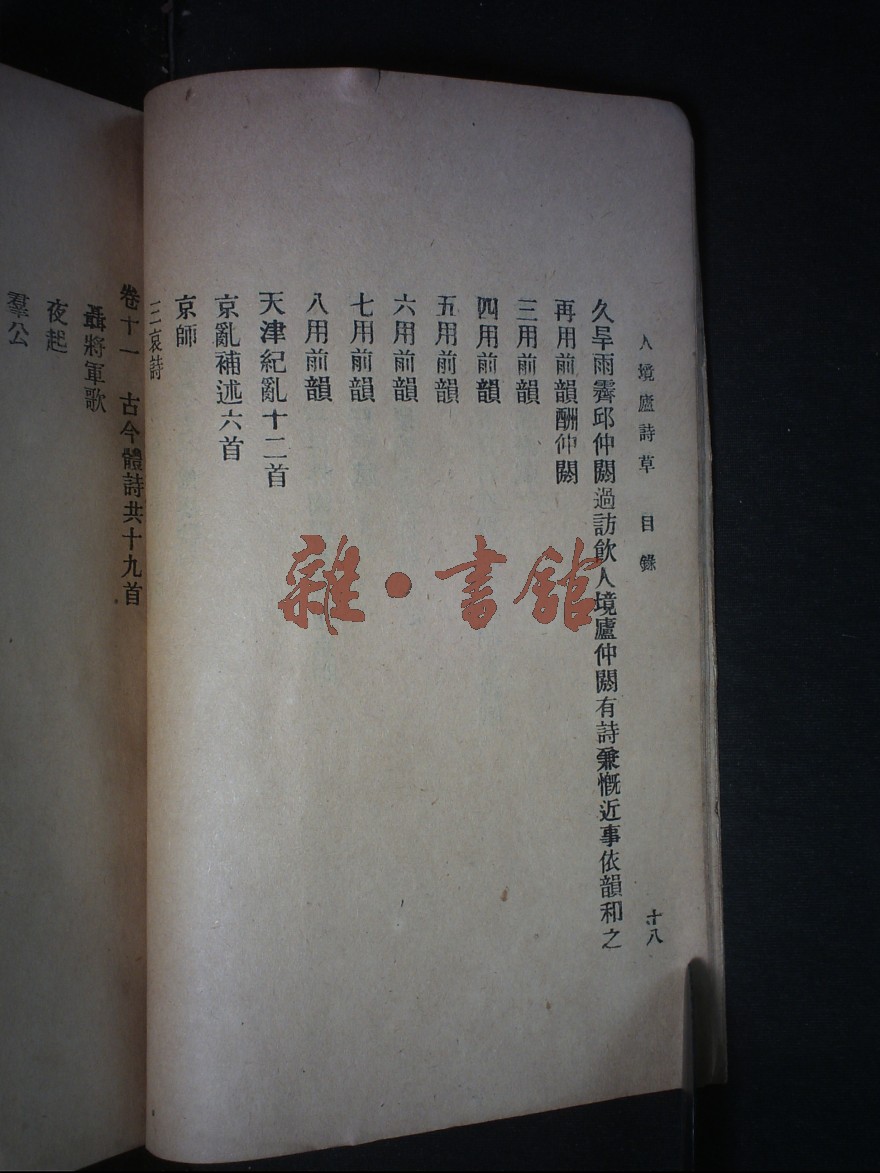 人境廬詩草　目錄　十八
久旱雨霽邱仲閼過訪飲人境廬仲閼有詩兼慨近事依韻和之
再用前韻酬仲閼
三用前韻
四用前韻
五用前韻
六用前韻
七用前韻
八用前韻
天津紀亂十二首
京亂補述六首
京師
三哀詩
卷十一　古今體詩共十九首
聶將軍歌
夜起
羣公
雜·書館